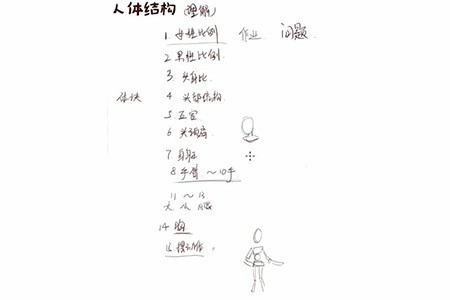 人体结构 (理解)
1. 女性比例 作业 问题.
2 男性比例.
3 头身比
体块 4 头部结构.
5. 五官
6 头颈肩
7
8 手臂 ~ 10手
11 ~ 13
大 小 腿
14 胸